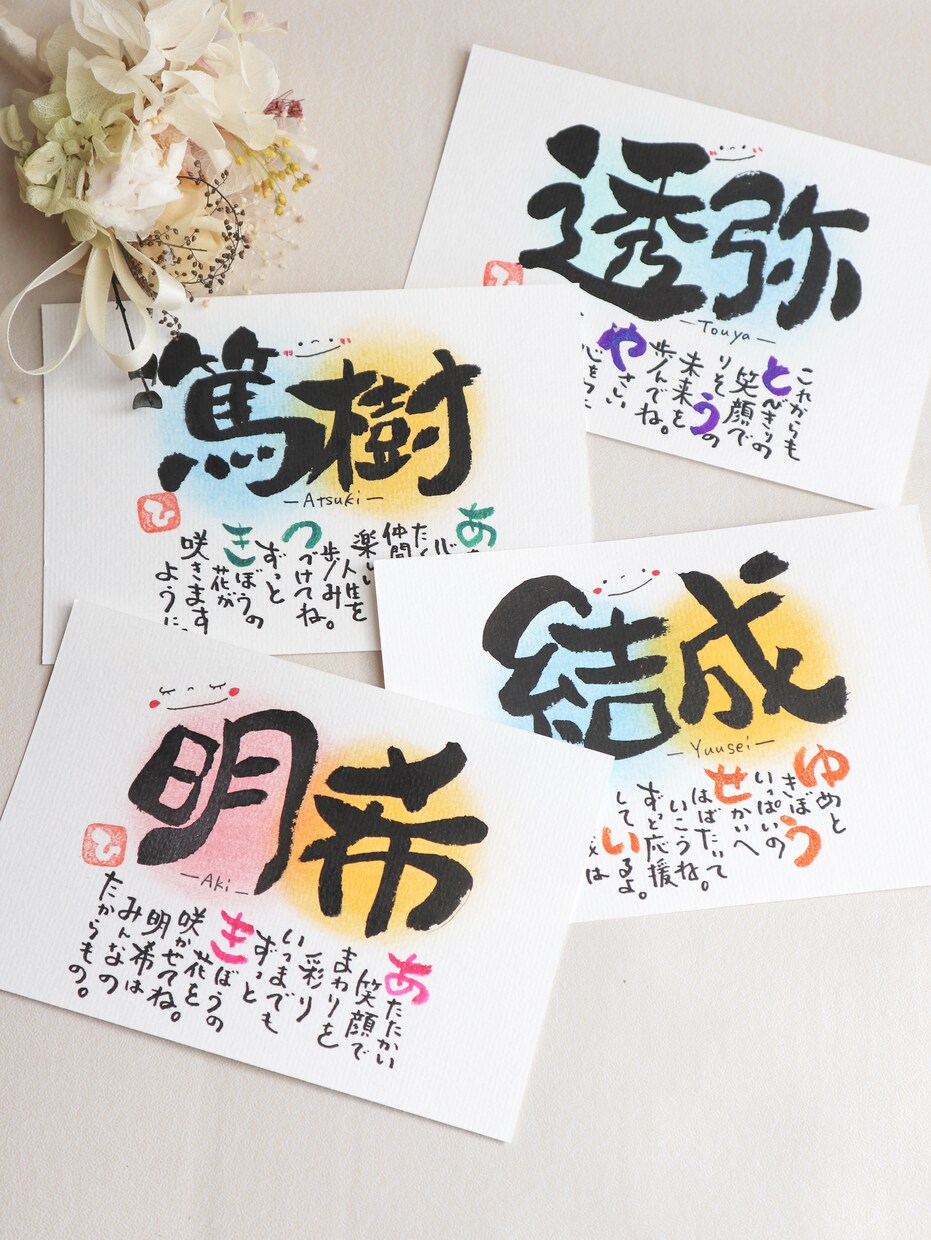 透弥
Touya
これからも
とびきりの
笑顔で
りそうの
未来を
歩んでね。
やさしい
篤樹
Atsuki
あ
仲間
楽しい
人生を
歩み
つづけてね。
ずっと
きぼうの
花が
咲きます
ように。
ひ
結成
Yuusei
ゆめと
きぼう
いっぱいの
せかいへ
はばたいて
いこうね。
ずっと応援
しているよ。
明希
Aki
あたたかい
笑顔で
まわりを
彩り
いつまでも
ずっと
きぼうの
花を
咲かせてね。
明希は
みんなの
たからもの。
ひ